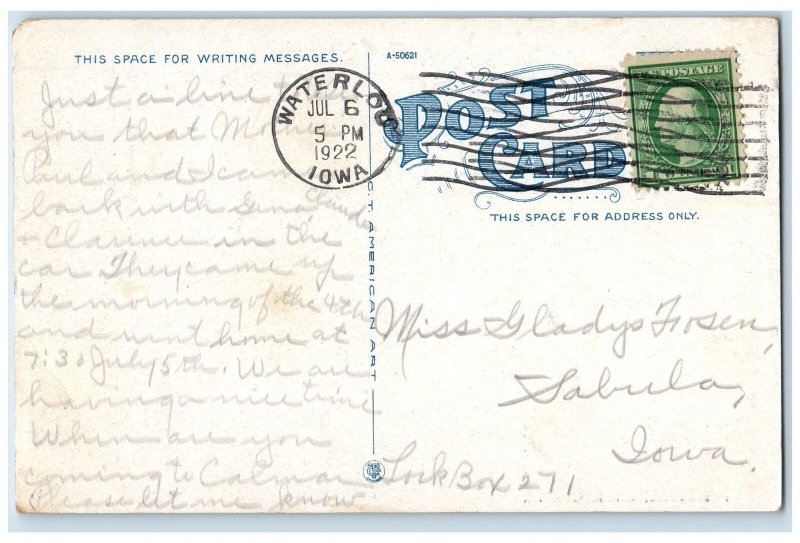 THIS SPACE FOR WRITING MESSAGES.
Just a line to
you that Mother
Pearl and I came
back with Gena, Lauda
+ Clarence in the
car They came up
the morning of the 4th
and went home at
7:30 July 5th. We are
having a nice time
When are you
coming to Calmar
Please let me know
C.T. AMERICAN ART
A-50621
WATERLOO
JUL 6
5 PM
1922
IOWA
POST CARD
POSTAGE
THIS SPACE FOR ADDRESS ONLY.
Miss Gladys Fosen,
Sabula,
Iowa.
Lock Box 271